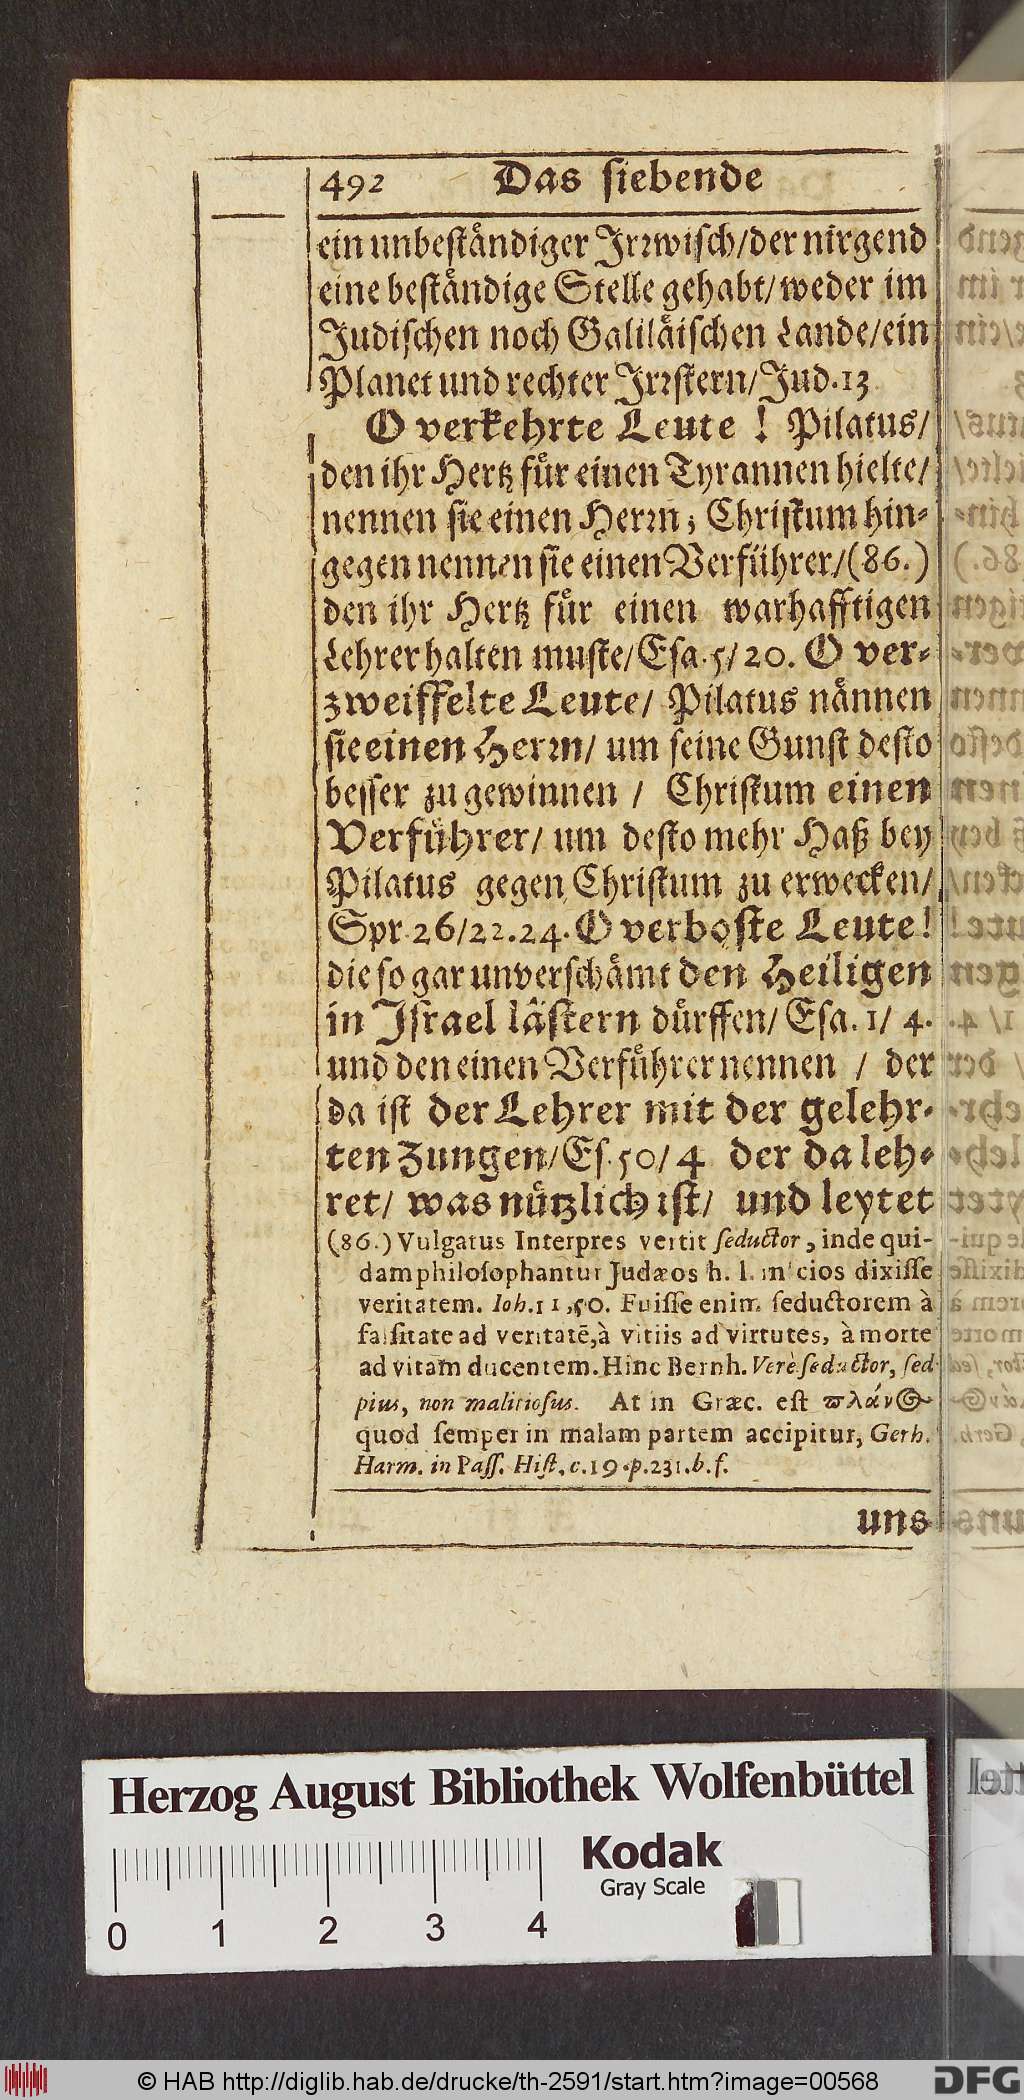 492 Das siebende
ein unbeständiger Irrwisch/der nirgend
eine beständige Stelle gehabt/weder im
Judischen noch Galiläischen Lande/ein
Planet und rechter Irrstern/Jud.13
O verkehrte Leute! Pilatus/
den ihr Hertz für einen Tyrannen hielte/
nennen sie einen Herrn; Christum hin-
gegen nennen sie einen Verführer/(86.)
den ihr Hertz für einen warhafftigen
Lehrer halten muste/Esa.5/20. O ver-
zweiffelte Leute/ Pilatus nännen
sie einen Herrn/ um seine Gunst desto
besser zu gewinnen / Christum einen
Verführer/ um desto mehr Haß bey
Pilatus gegen Christum zu erwecken/
Spr.26/22.24. O verboste Leute!
die so gar unverschämt den Heiligen
in Israel lästern dürffen/Esa.1/4.
und den einen Verführer nennen / der
da ist der Lehrer mit der gelehr-
ten Zungen/Es.50/4 der da leh-
ret/ was nützlich ist/ und leytet
(86.) Vulgatus Interpres vertit seductor, inde qui-
dam philosophantur Judæos h. l. inscios dixisse
veritatem. Ioh.11,50. Fuisse enim seductorem à
falsitate ad veritatē, à vitiis ad virtutes, à morte
ad vitam ducentem. Hinc Bernh. Verè seductor, sed
pius, non malitiosus. At in Græc. est πλάν@
quod semper in malam partem accipitur, Gerh.
Harm. in Pass. Hist. c.19.p.231.b.f.
uns
Herzog August Bibliothek Wolfenbüttel
Kodak
Gray Scale
0 1 2 3 4
© HAB http://diglib.hab.de/drucke/th-2591/start.htm?image=00568
DFG